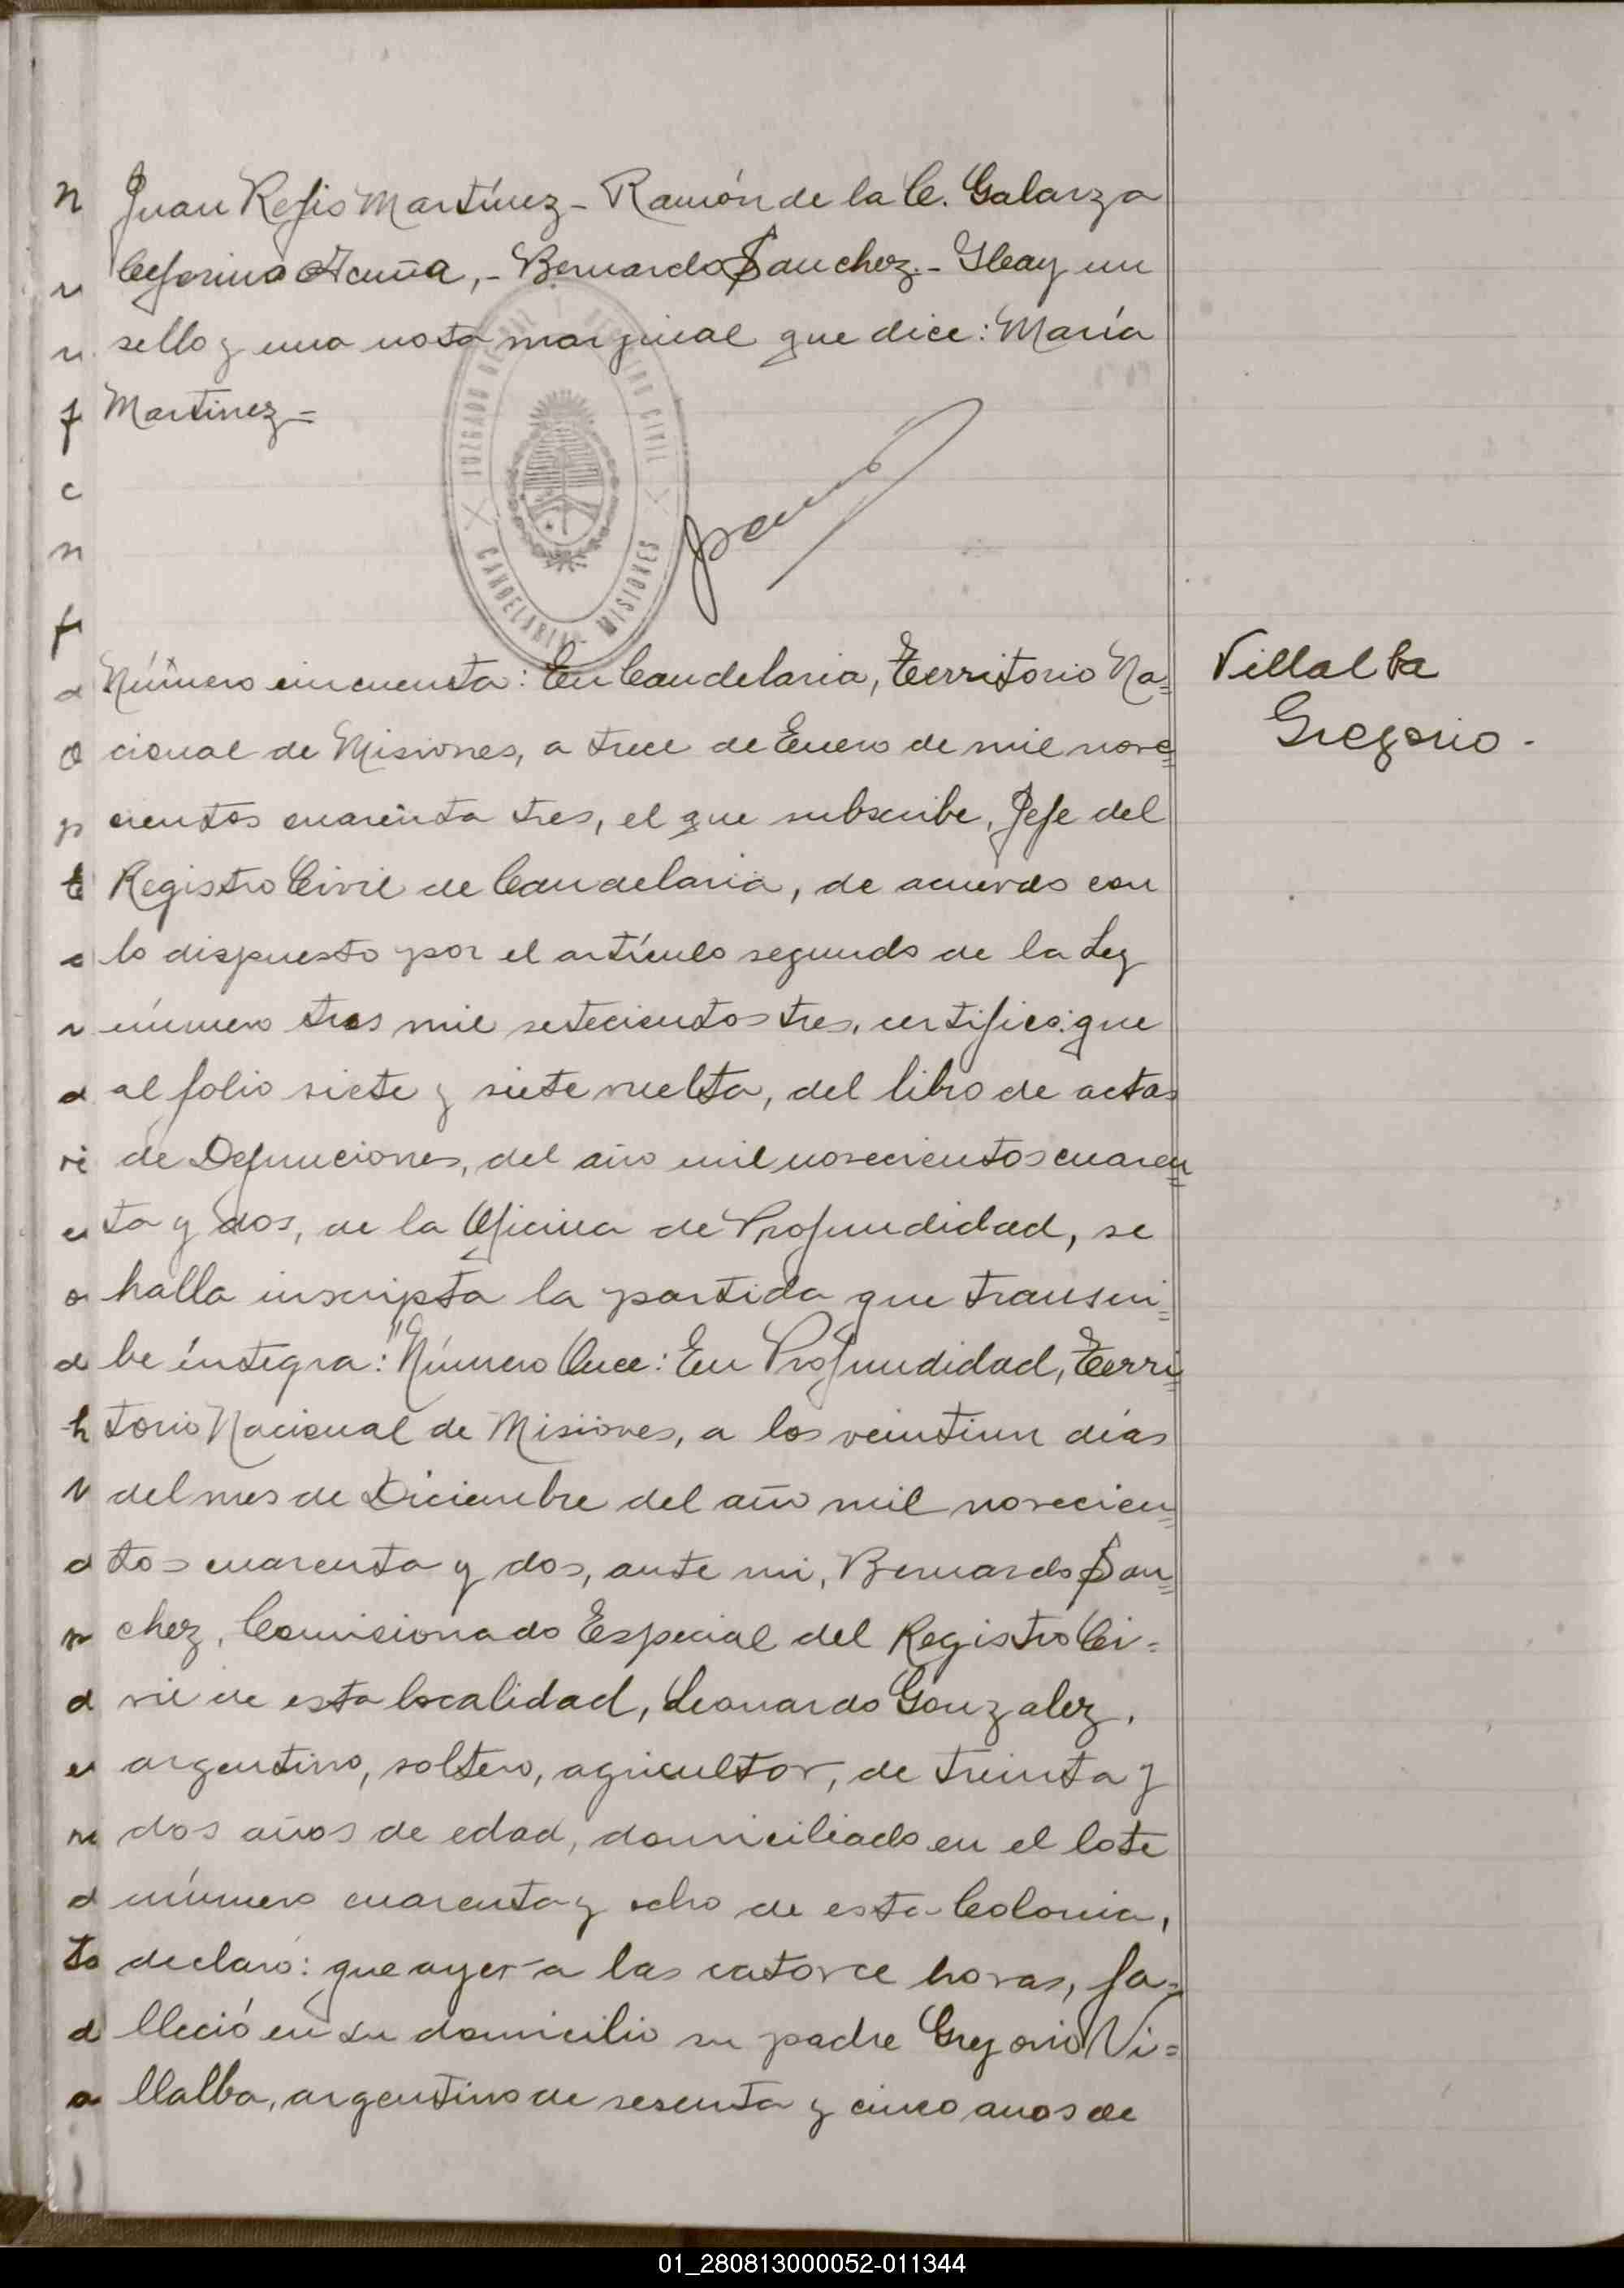 Juan Regis Martínez - Ramón de la C. Galarza
Ceferino Acuña, - Bernardo Sanchez. - Hay un
sello y una nota marginal que dice: María
Martinez =
JUZGADO DE PAZ REGISTRO CIVIL
CANDELARIA - MISIONES
Número cincuenta: En Candelaria, Territorio Na=
cional de Misiones, a trece de Enero de mil nove=
cientos cuarenta tres, el que subscribe, Jefe del
Registro Civil de Candelaria, de acuerdo con
lo dispuesto por el artículo segundo de la Ley
número tres mil setecientos tres, certifico: que
al folio siete y siete vuelta, del libro de actas
de Defunciones, del año mil novecientos cuaren=
ta y dos, de la Oficina de Profundidad, se
halla inscripta la partida que transcri=
be íntegra: "Número Once: En Profundidad, Terri=
torio Nacional de Misiones, a los veintiun días
del mes de Diciembre del año mil novecien=
tos cuarenta y dos, ante mi, Bernardo San=
chez, Comisionado Especial del Registro Ci=
vil de esta localidad, Leonardo Gonzalez,
argentino, soltero, agricultor, de treinta y
dos años de edad, domiciliado en el lote
número cuarenta y ocho de esta Colonia,
declaró: que ayer a las catorce horas, fa=
lleció en su domicilio su padre Gregorio Vi=
llalba, argentino de sesenta y cinco anos de
Villalba
Gregorio -
01_280813000052-011344